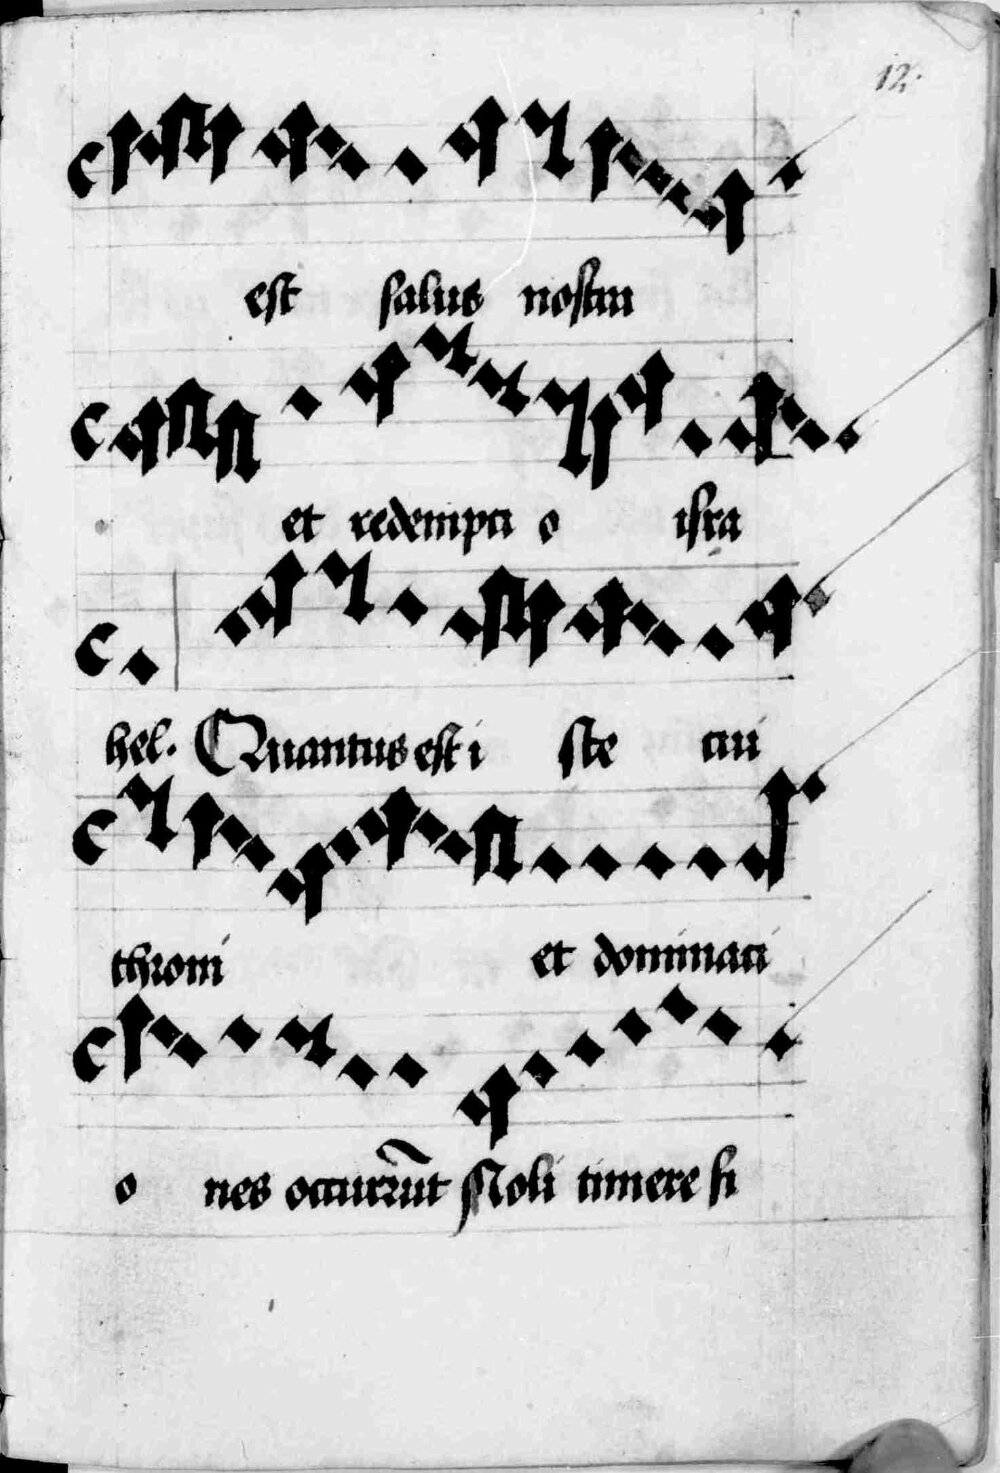 12.
est salus nostra
et redempti o isra
hel. Quantus est i ste cui
throni et dominaci
o nes occurrūt Noli timere fi